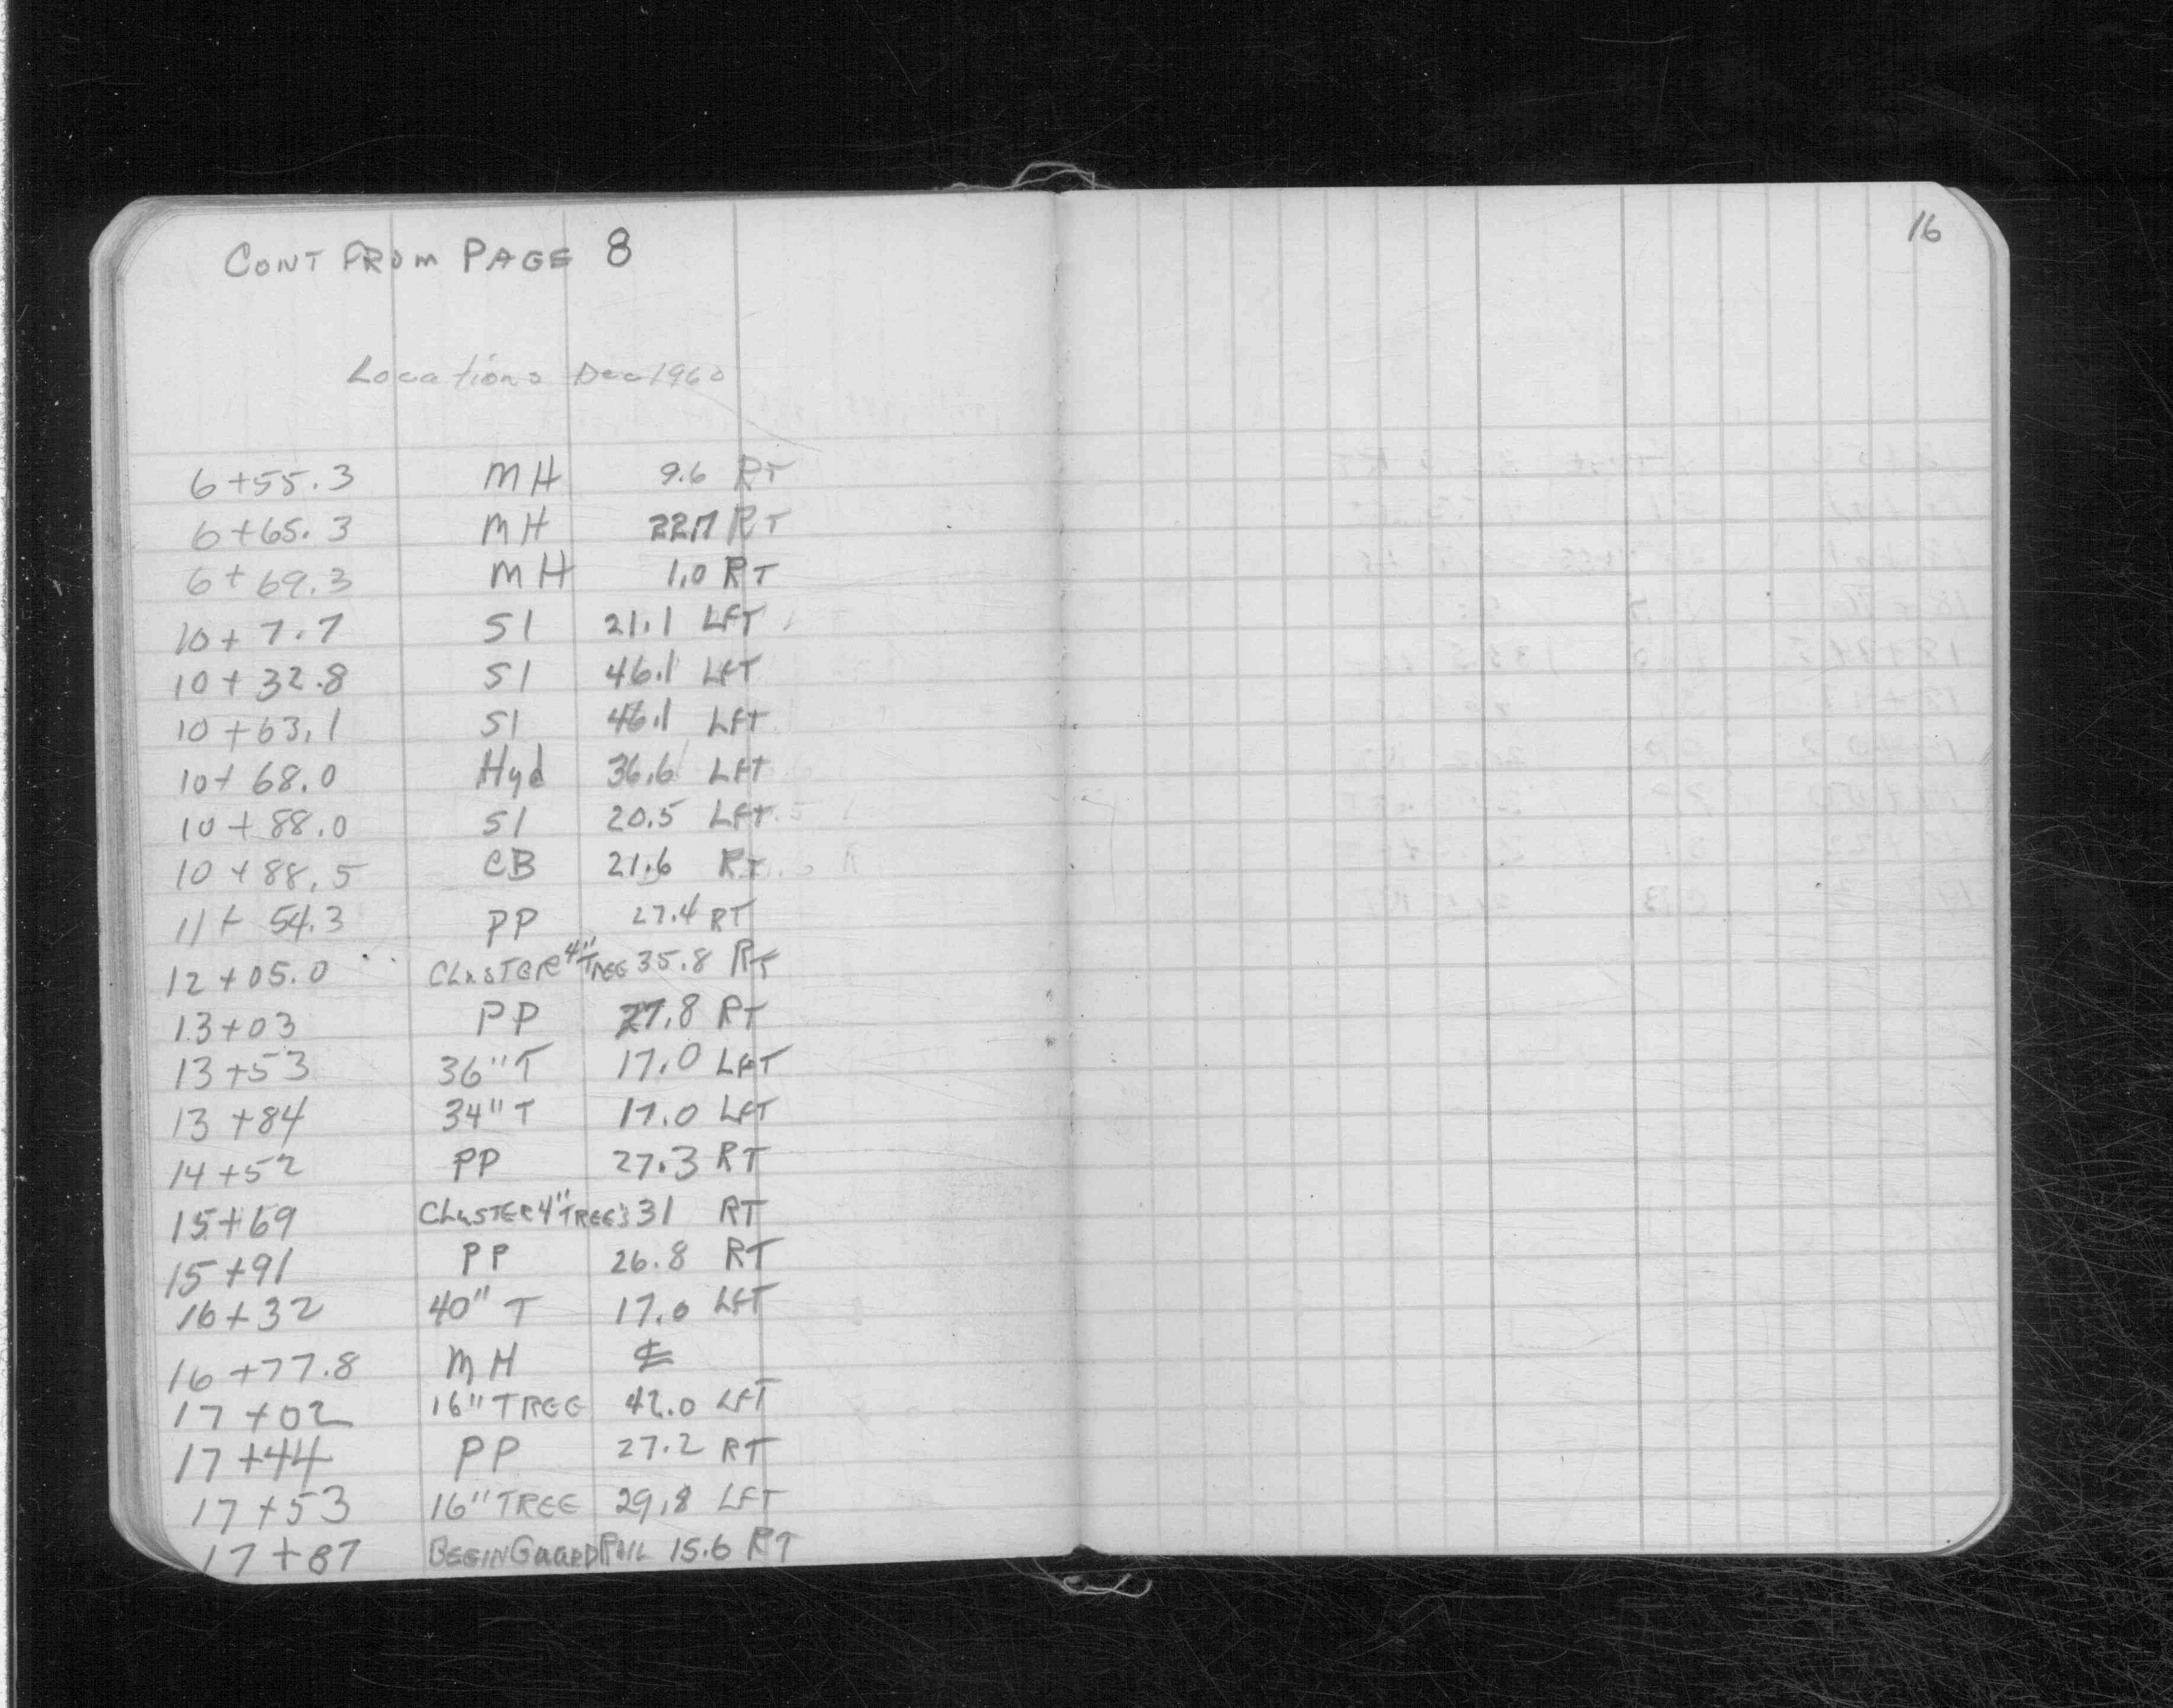 CONT FROM PAGE 8
16
Locations Dec 1960
6+55.3 MH 9.6 RT
6+65.3 MH 22.7 RT
6+69.3 MH 1.0 RT
10+7.7 SI 21.1 LFT
10+32.8 SI 46.1 LFT
10+63.1 SI 46.1 LFT
10+68.0 Hyd 36.6 LFT
10+88.0 SI 20.5 LFT
10+88.5 CB 21.6 RT
11+54.3 PP 27.4 RT
12+05.0 CLUSTER 4" TREE 35.8 RT
13+03 PP 27.8 RT
13+53 36" T 17.0 LFT
13+84 34" T 17.0 LFT
14+52 PP 27.3 RT
15+69 CLUSTER 4" TREES 31 RT
15+91 PP 26.8 RT
16+32 40" T 17.0 LFT
16+77.8 MH ℄
17+02 16" TREE 42.0 LFT
17+44 PP 27.2 RT
17+53 16" TREE 29.8 LFT
17+87 BEGIN GUARD RAIL 15.6 RT